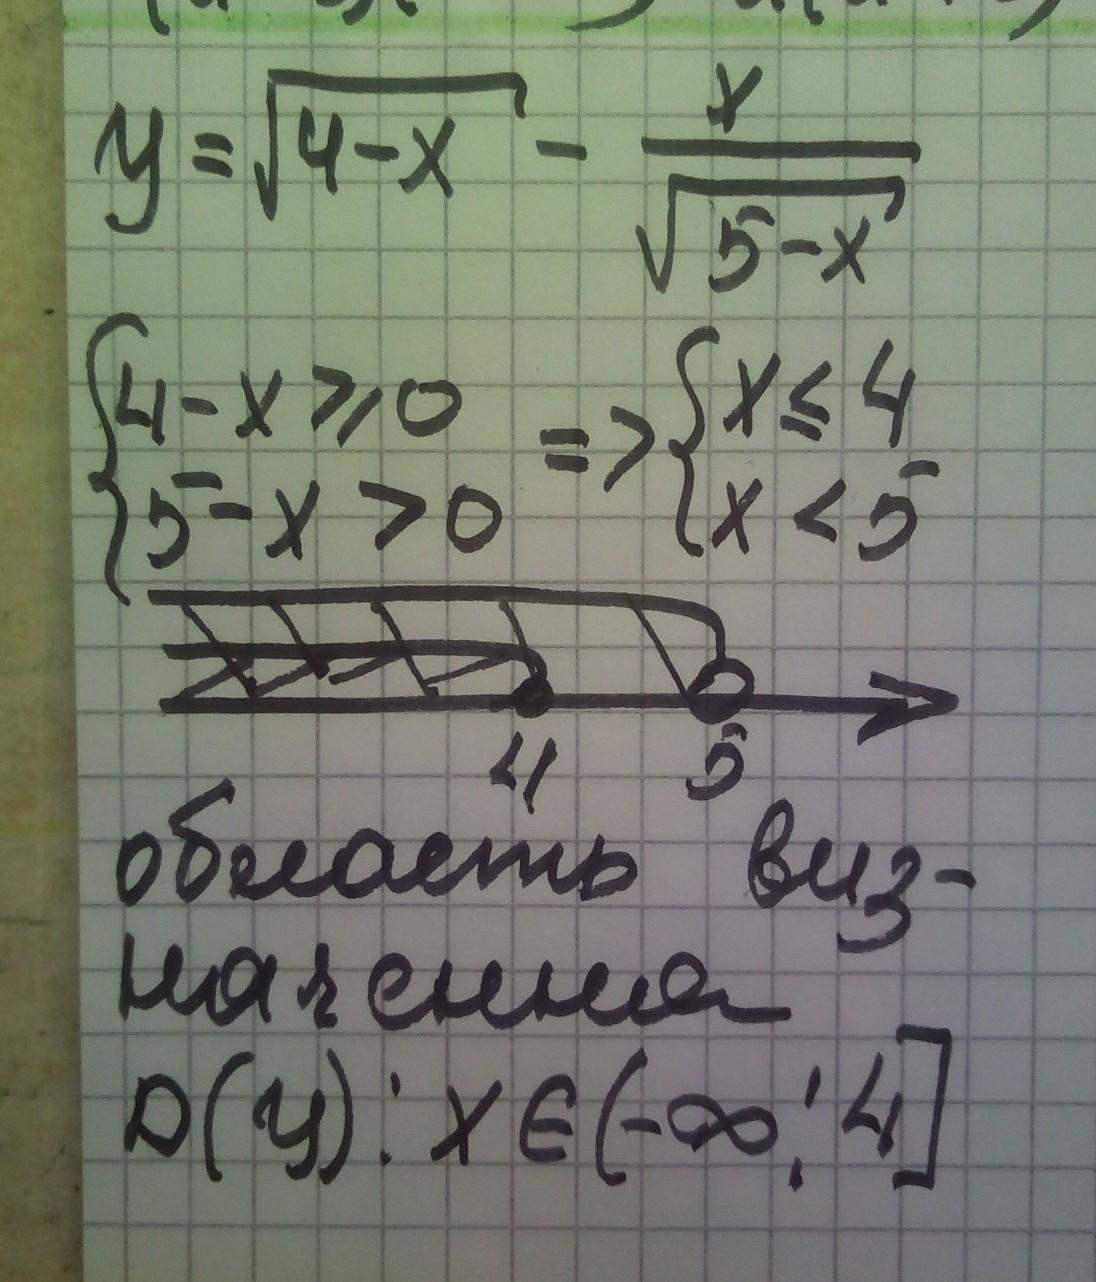 y = √(4-x) - x/√(5-x)
{4-x ≥ 0 => {x ≤ 4
{5-x > 0 {x < 5
4 5
область виз-
начення
D(y): x ∈ (-∞; 4]